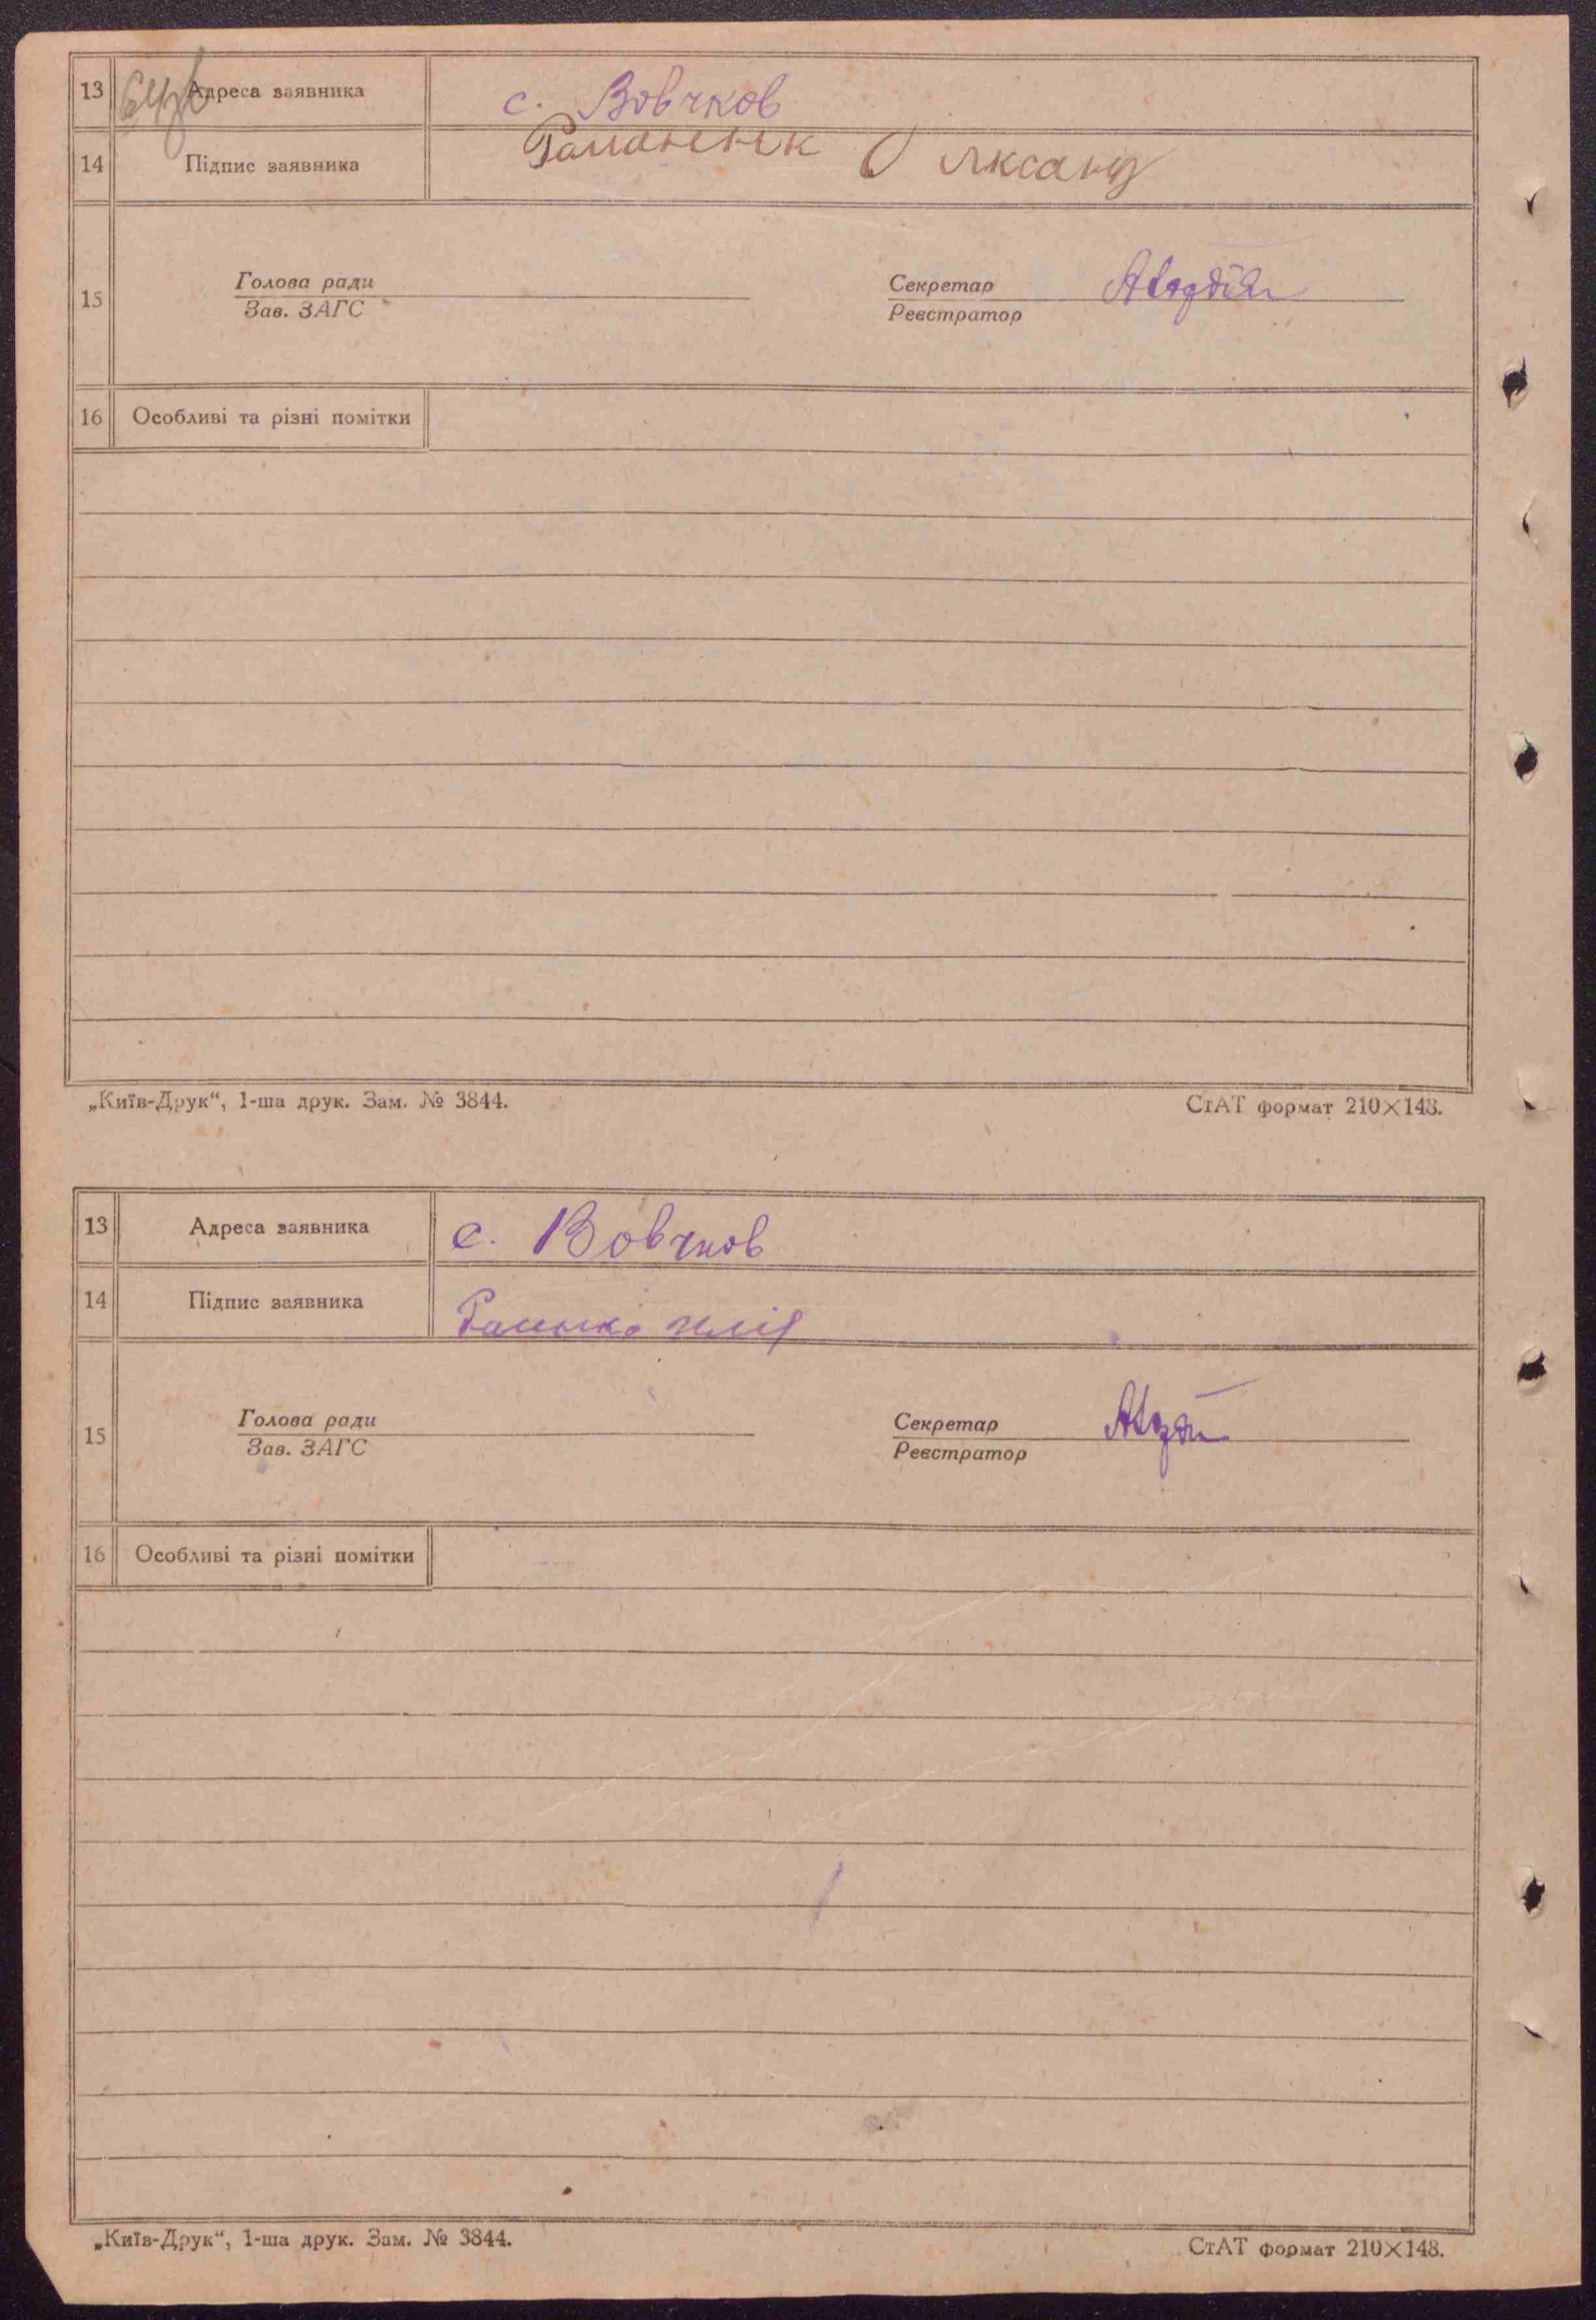 13 Адреса заявника с. Вовчков
14 Підпис заявника
15 Голова ради Секретар
Зав. ЗАГС Реєстратор
16 Особливі та різні помітки
„Київ-Друк“, 1-ша друк. Зам. № 3844. СтАТ формат 210×148.
13 Адреса заявника с. Вовчков
14 Підпис заявника
15 Голова ради Секретар
Зав. ЗАГС Реєстратор
16 Особливі та різні помітки
„Київ-Друк“, 1-ша друк. Зам. № 3844. СтАТ формат 210×148.